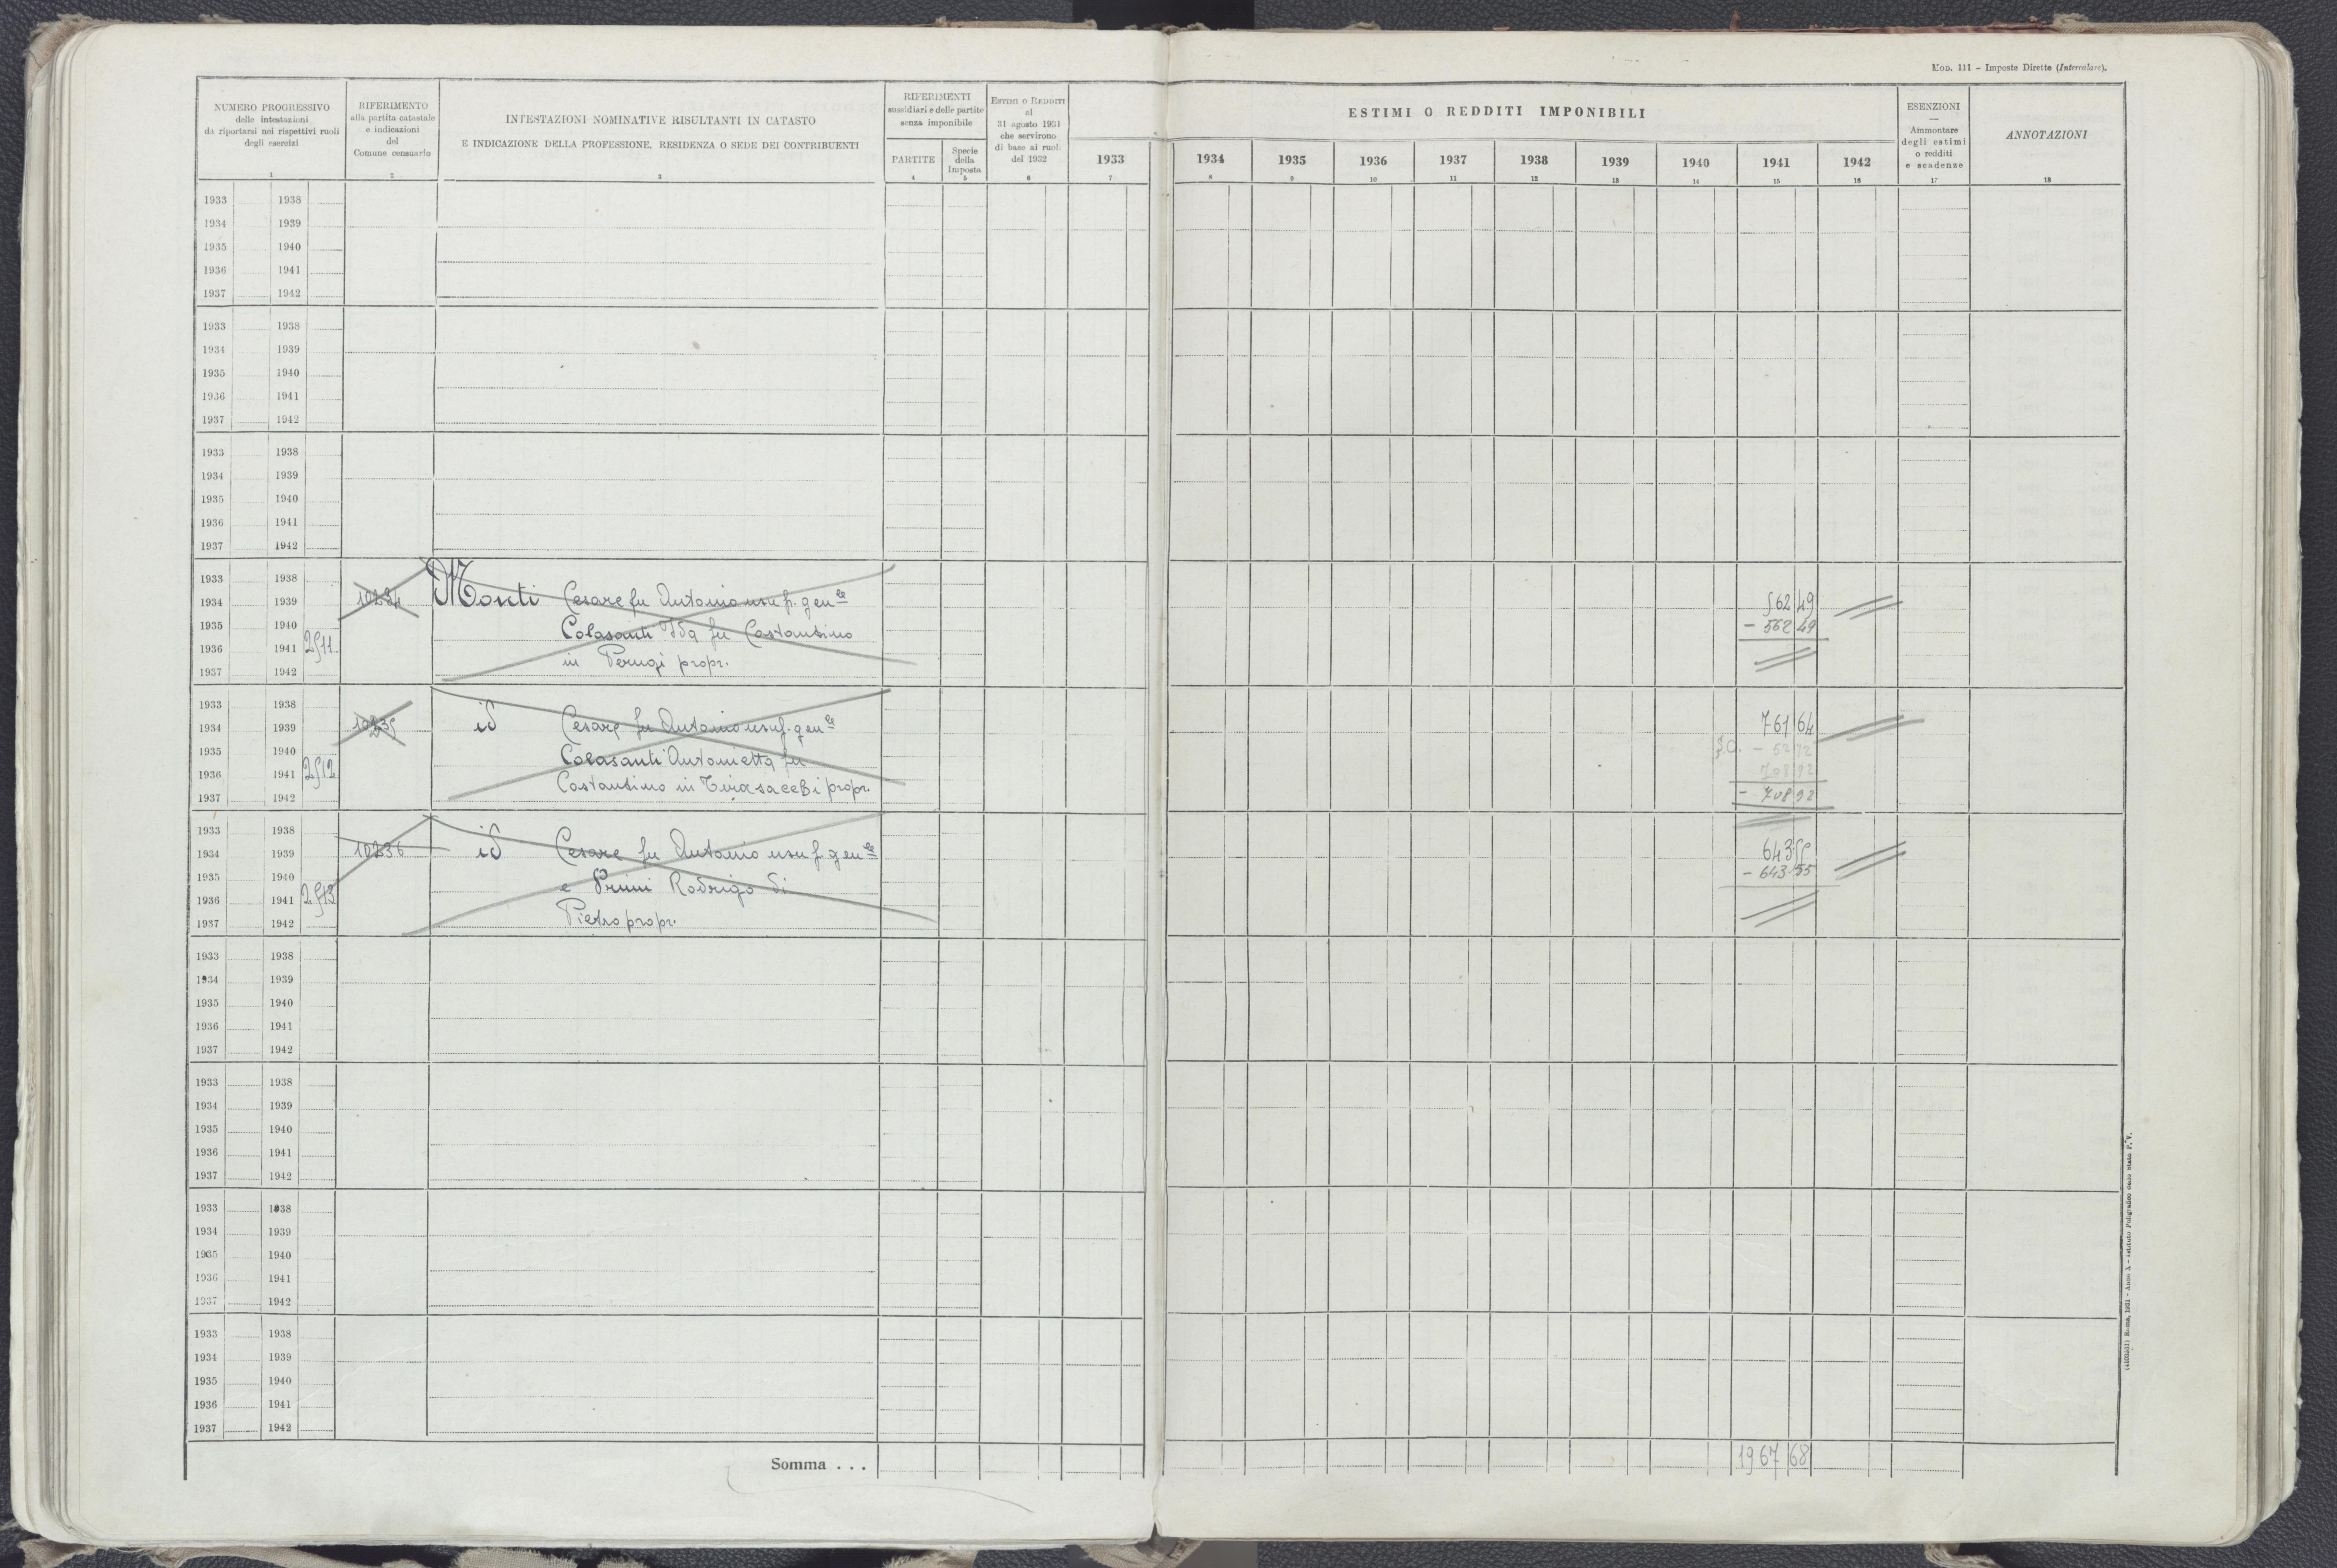 Mod. 111 - Imposte Dirette (Intercalare).
NUMERO PROGRESSIVO
delle intestazioni
da riportarsi nei rispettivi ruoli
degli esercizi
1
RIFERIMENTO
alla partita catastale
e indicazioni
del
Comune censuario
2
INTESTAZIONI NOMINATIVE RISULTANTI IN CATASTO
E INDICAZIONE DELLA PROFESSIONE, RESIDENZA O SEDE DEI CONTRIBUENTI
3
RIFERIMENTI
sussidiari e delle partite
senza imponibile
PARTITE
4
Specie
della
Imposta
5
ESTIMI O REDDITI
al
31 agosto 1931
che servirono
di base ai ruoli
del 1932
6
ESTIMI O REDDITI IMPONIBILI
1933 1934 1935 1936 1937 1938 1939 1940 1941 1942
7 8 9 10 11 12 13 14 15 16
ESENZIONI
—
Ammontare
degli estimi
o redditi
e scadenze
17
ANNOTAZIONI
18
1933 1938
1934 1939
1935 1940
1936 1941
1937 1942
1933 1938
1934 1939
1935 1940
1936 1941
1937 1942
1933 1938
1934 1939
1935 1940
1936 1941
1937 1942
1933 1938
1934 1939 10234 Monti Cesare fu Antonio usuf. gen.le 562 49
1935 1940 Colasanti Ida fu Costantino - 562 49
1936 1941 2511 in Perugi propr.
1937 1942
1933 1938
1934 1939 10235 id Cesare fu Antonio usuf. gen.le 761 64
1935 1940 Colasanti Antonietta fu - 52 72
1936 1941 2512 Costantino in propr. 708 92
1937 1942 - 708 92
1933 1938
1934 1939 10236 id Cesare fu Antonio usuf. gen.le 643 55
1935 1940 e Primi Rodrigo di - 643 55
1936 1941 2513 Pietro propr.
1937 1942
1933 1938
1934 1939
1935 1940
1936 1941
1937 1942
1933 1938
1934 1939
1935 1940
1936 1941
1937 1942
1933 1938
1934 1939
1935 1940
1936 1941
1937 1942
1933 1938
1934 1939
1935 1940
1936 1941
1937 1942
Somma . . . 1967 68
Roma, 1931 - Anno X - Istituto Poligrafico dello Stato P. V.